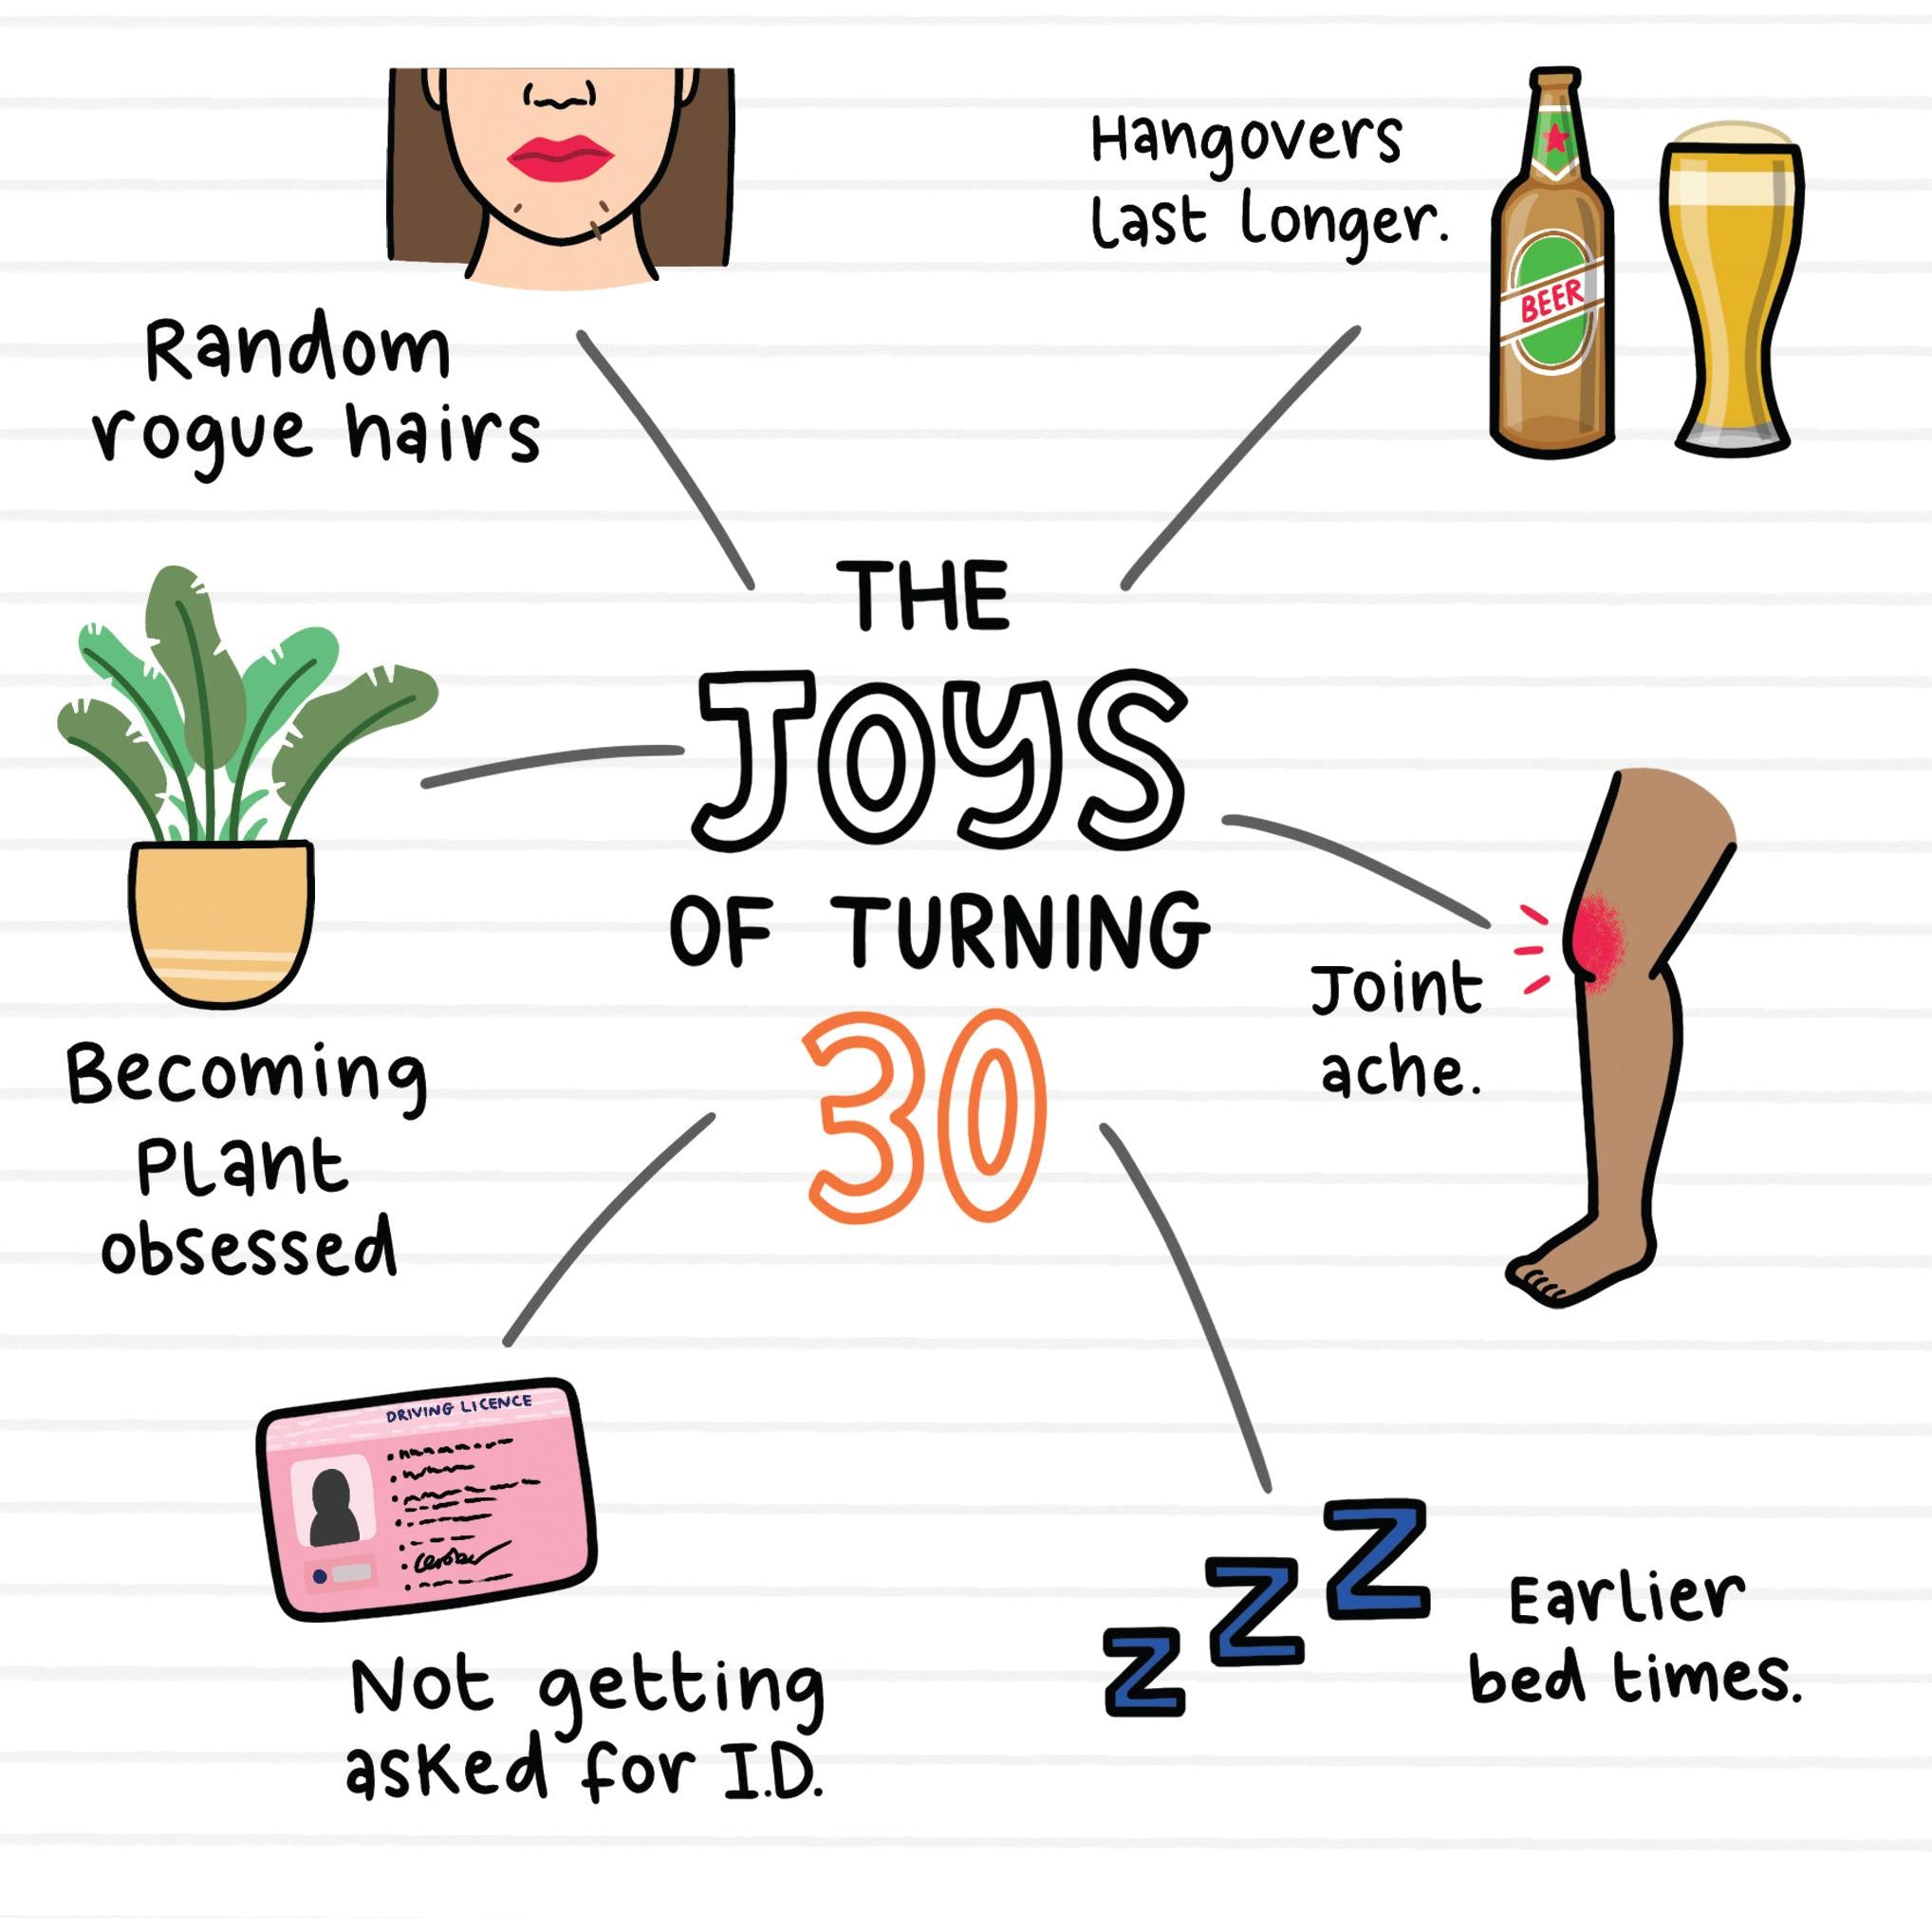 Hangovers
Last Longer.
BEER
Random
rogue hairs
THE
JOYS
OF TURNING
30
Joint
ache.
Becoming
PLant
obsessed
DRIVING LICENCE
Not getting
asked for I.D.
z Z Z
Earlier
bed times.